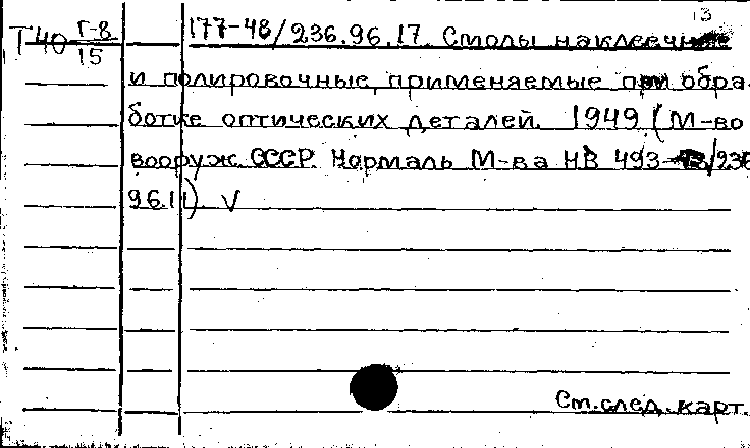 13
Т40 Г-8/15 177-48/236.96.17. Смолы наклеечные
и полировочные, применяемые при обра-
ботке оптических деталей. 1949. (М-во
вооруж. СССР. Нормаль М-ва НВ 493- /236
96.11). V
См. след. карт.